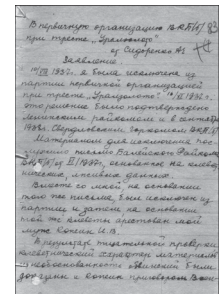 В первичную организацию ВКП(б)
при тресте „Уралзолото"
от Сидоренко А.
Заявление.
1937г. я была исключена из
партии первичной организацией
при тресте
решение было подтверждено
Ленинским райкомом и в сентябре
Свердловским Горкомом ВКП(б)
Материалом для исключения пос-
лужило письмо Райкома
ВКП(б) от 1937г., основанное на клеве-
нических, лживых данных.
Вместе со мной, на основании
того же письма, был исключен из
партии и затем на основании
той же клеветы арестован мой
муж Конкин И.В.
В результате тщательной проверки
клеветнический характер материалов
и необоснованность обвинений были
доказаны и Конкин приговором Воен-